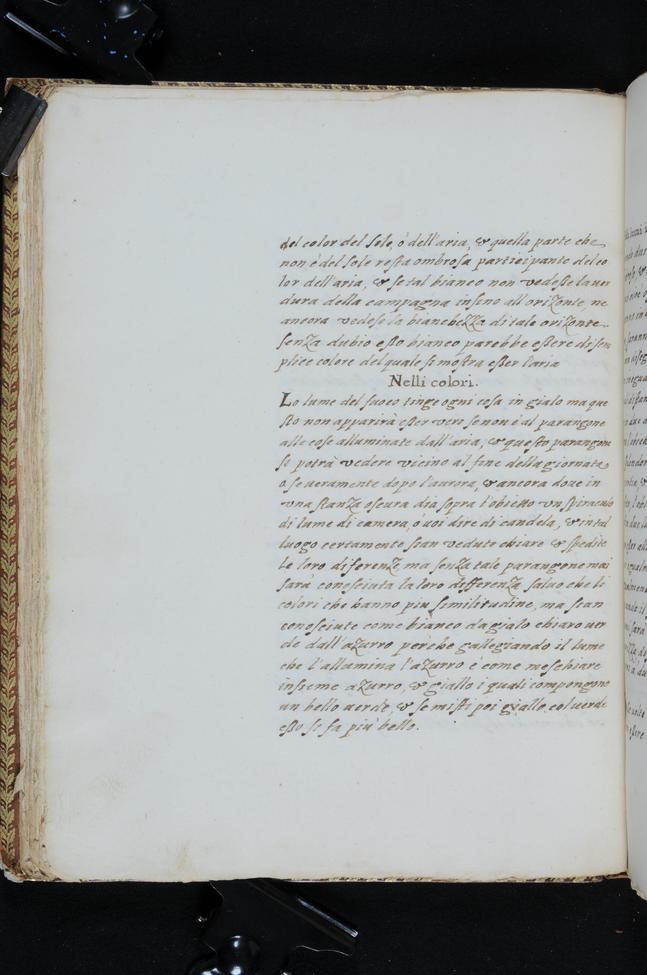 del color del sole, ò dell'aria, & quella parte che
non è del sole resta ombrosa partecipante del co
lor dell'aria, & se tal bianco non vedesse la ver
dura della campagna insino all'oriZonte, ne
ancora vedese la bianchezza di tale oriZonte
senZa dubio esso bianco parebbe essere di sem
plice colore del quale si mostra esser l'aria
Nelli colori.
Lo lume del fuoco tinge ogni cosa in gialo ma que
sto non apparirà esser vero se non è al parangone
alle cose alluminate dall'aria, & questo parangone
si potrà vedere vicino al fine della giornata
o se veramente dopo l'aurora, & ancora dove in
vna stanZa oscura dia sopra l'obietto vn spiraculo
di lume di camera, ò uoi dire di candela, & in tal
luogo certamente sian vedute chiare & spedite
le loro diferenZe, ma senZa tale parangone mai
sarà conosciuta la loro differenZa salvo che li
colori che hanno piu similitudine, ma sian
conosciute come bianco da gialo chiaro uer
de dall'aZurro perche gallegiando il lume
che l'allumina l'aZurro è come meschiare
insieme aZurro, & giallo i quali compongono
un bello uerde, & se misti poi gialle col uerde
esso si fa più bello.